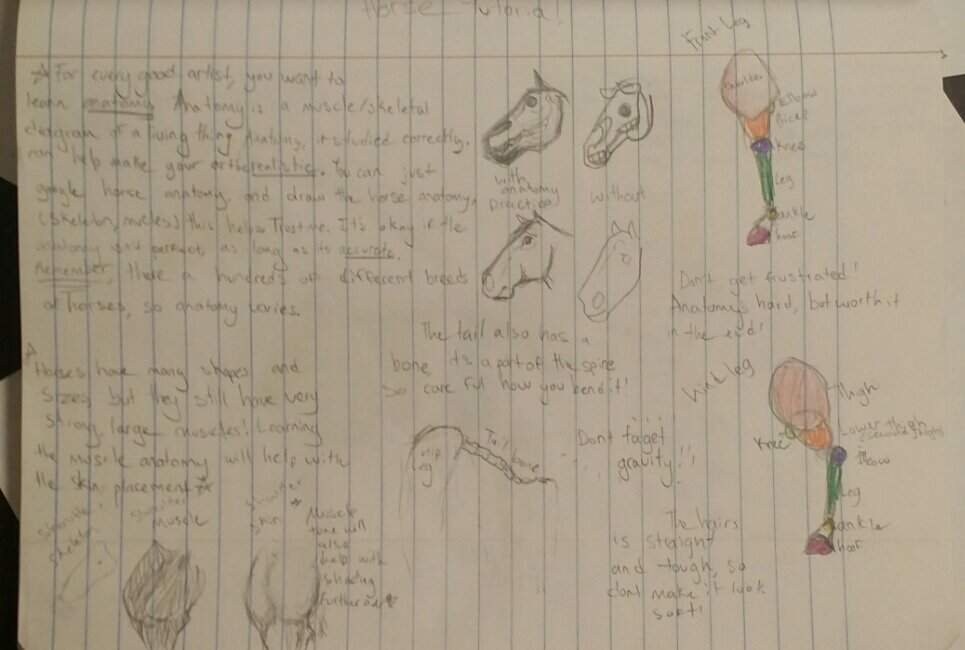 Horse Tutorial!
For every good artist, you want to
learn anatomy. Anatomy is a muscle/skeletal
diagram of a living thing. Anatomy, if studied correctly,
can help make your art realistic. You can just
google horse anatomy, and draw the horse anatomy.
(skeleton, muscles) this helps Trust me. It's okay if the
anatomy isn't perfect as long as its accurate.
Remember, there a hundreds of different breeds
of horses, so anatomy varies.
Horses have many shapes and
sizes, but they still have very
strong, large muscles! Learning
the muscle anatomy will help with
the skin placement
shoulder
skeleton
shoulder
Muscle
shoulder
skin
Muscle
tone will
also
help with
shading
further on
with
anatomy
practice
without
The tail also has a
bone, its a part of the spine
so careful how you bend it!
hip
Tail
bone
Dont forget
gravity!!
The hairs
is straight
and tough, so
dont make it look
soft!
Front leg
shoulder
Bicep
Knee
Leg
ankle
hoof
Don't get frustrated!
Anatomy's hard, but worth it
in the end!
Hind leg
thigh
Lower thigh
Knee
Leg
ankle
hoof